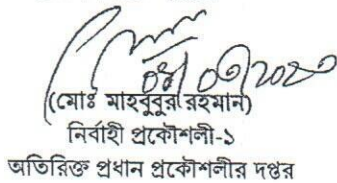 (মোঃ মাহবুবুর রহমান)
নির্বাহী প্রকৌশলী-১
অতিরিক্ত প্রধান প্রকৌশলীর দপ্তর